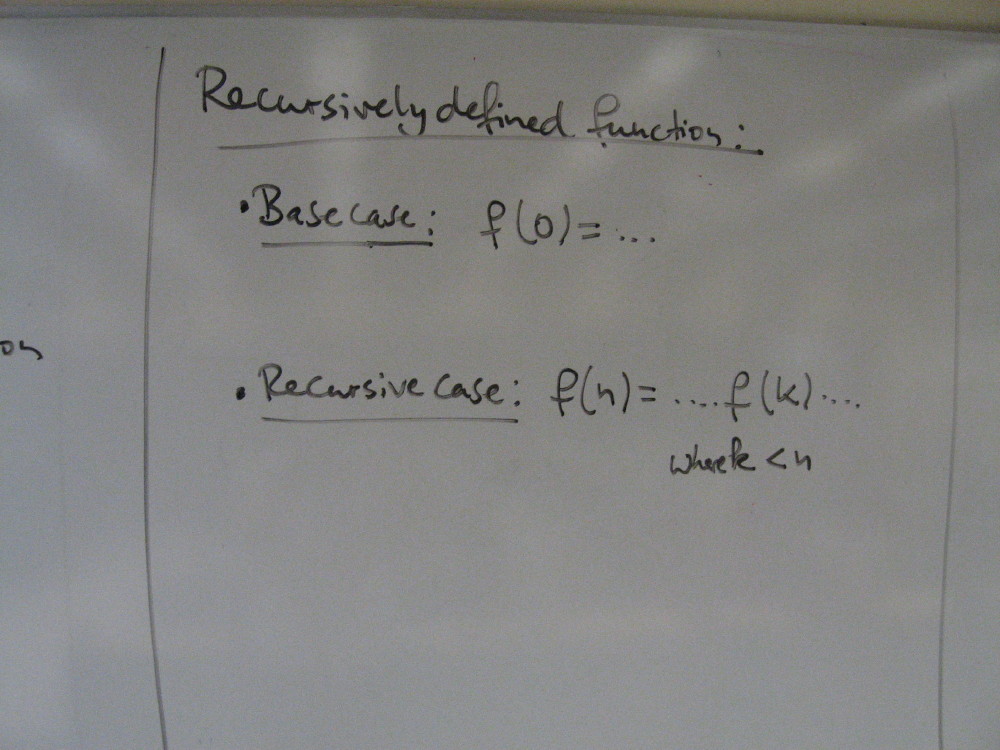 Recursively defined function:
• Base case: f(0) = ...
• Recursive case: f(n) = ....f(k)....
where k < n